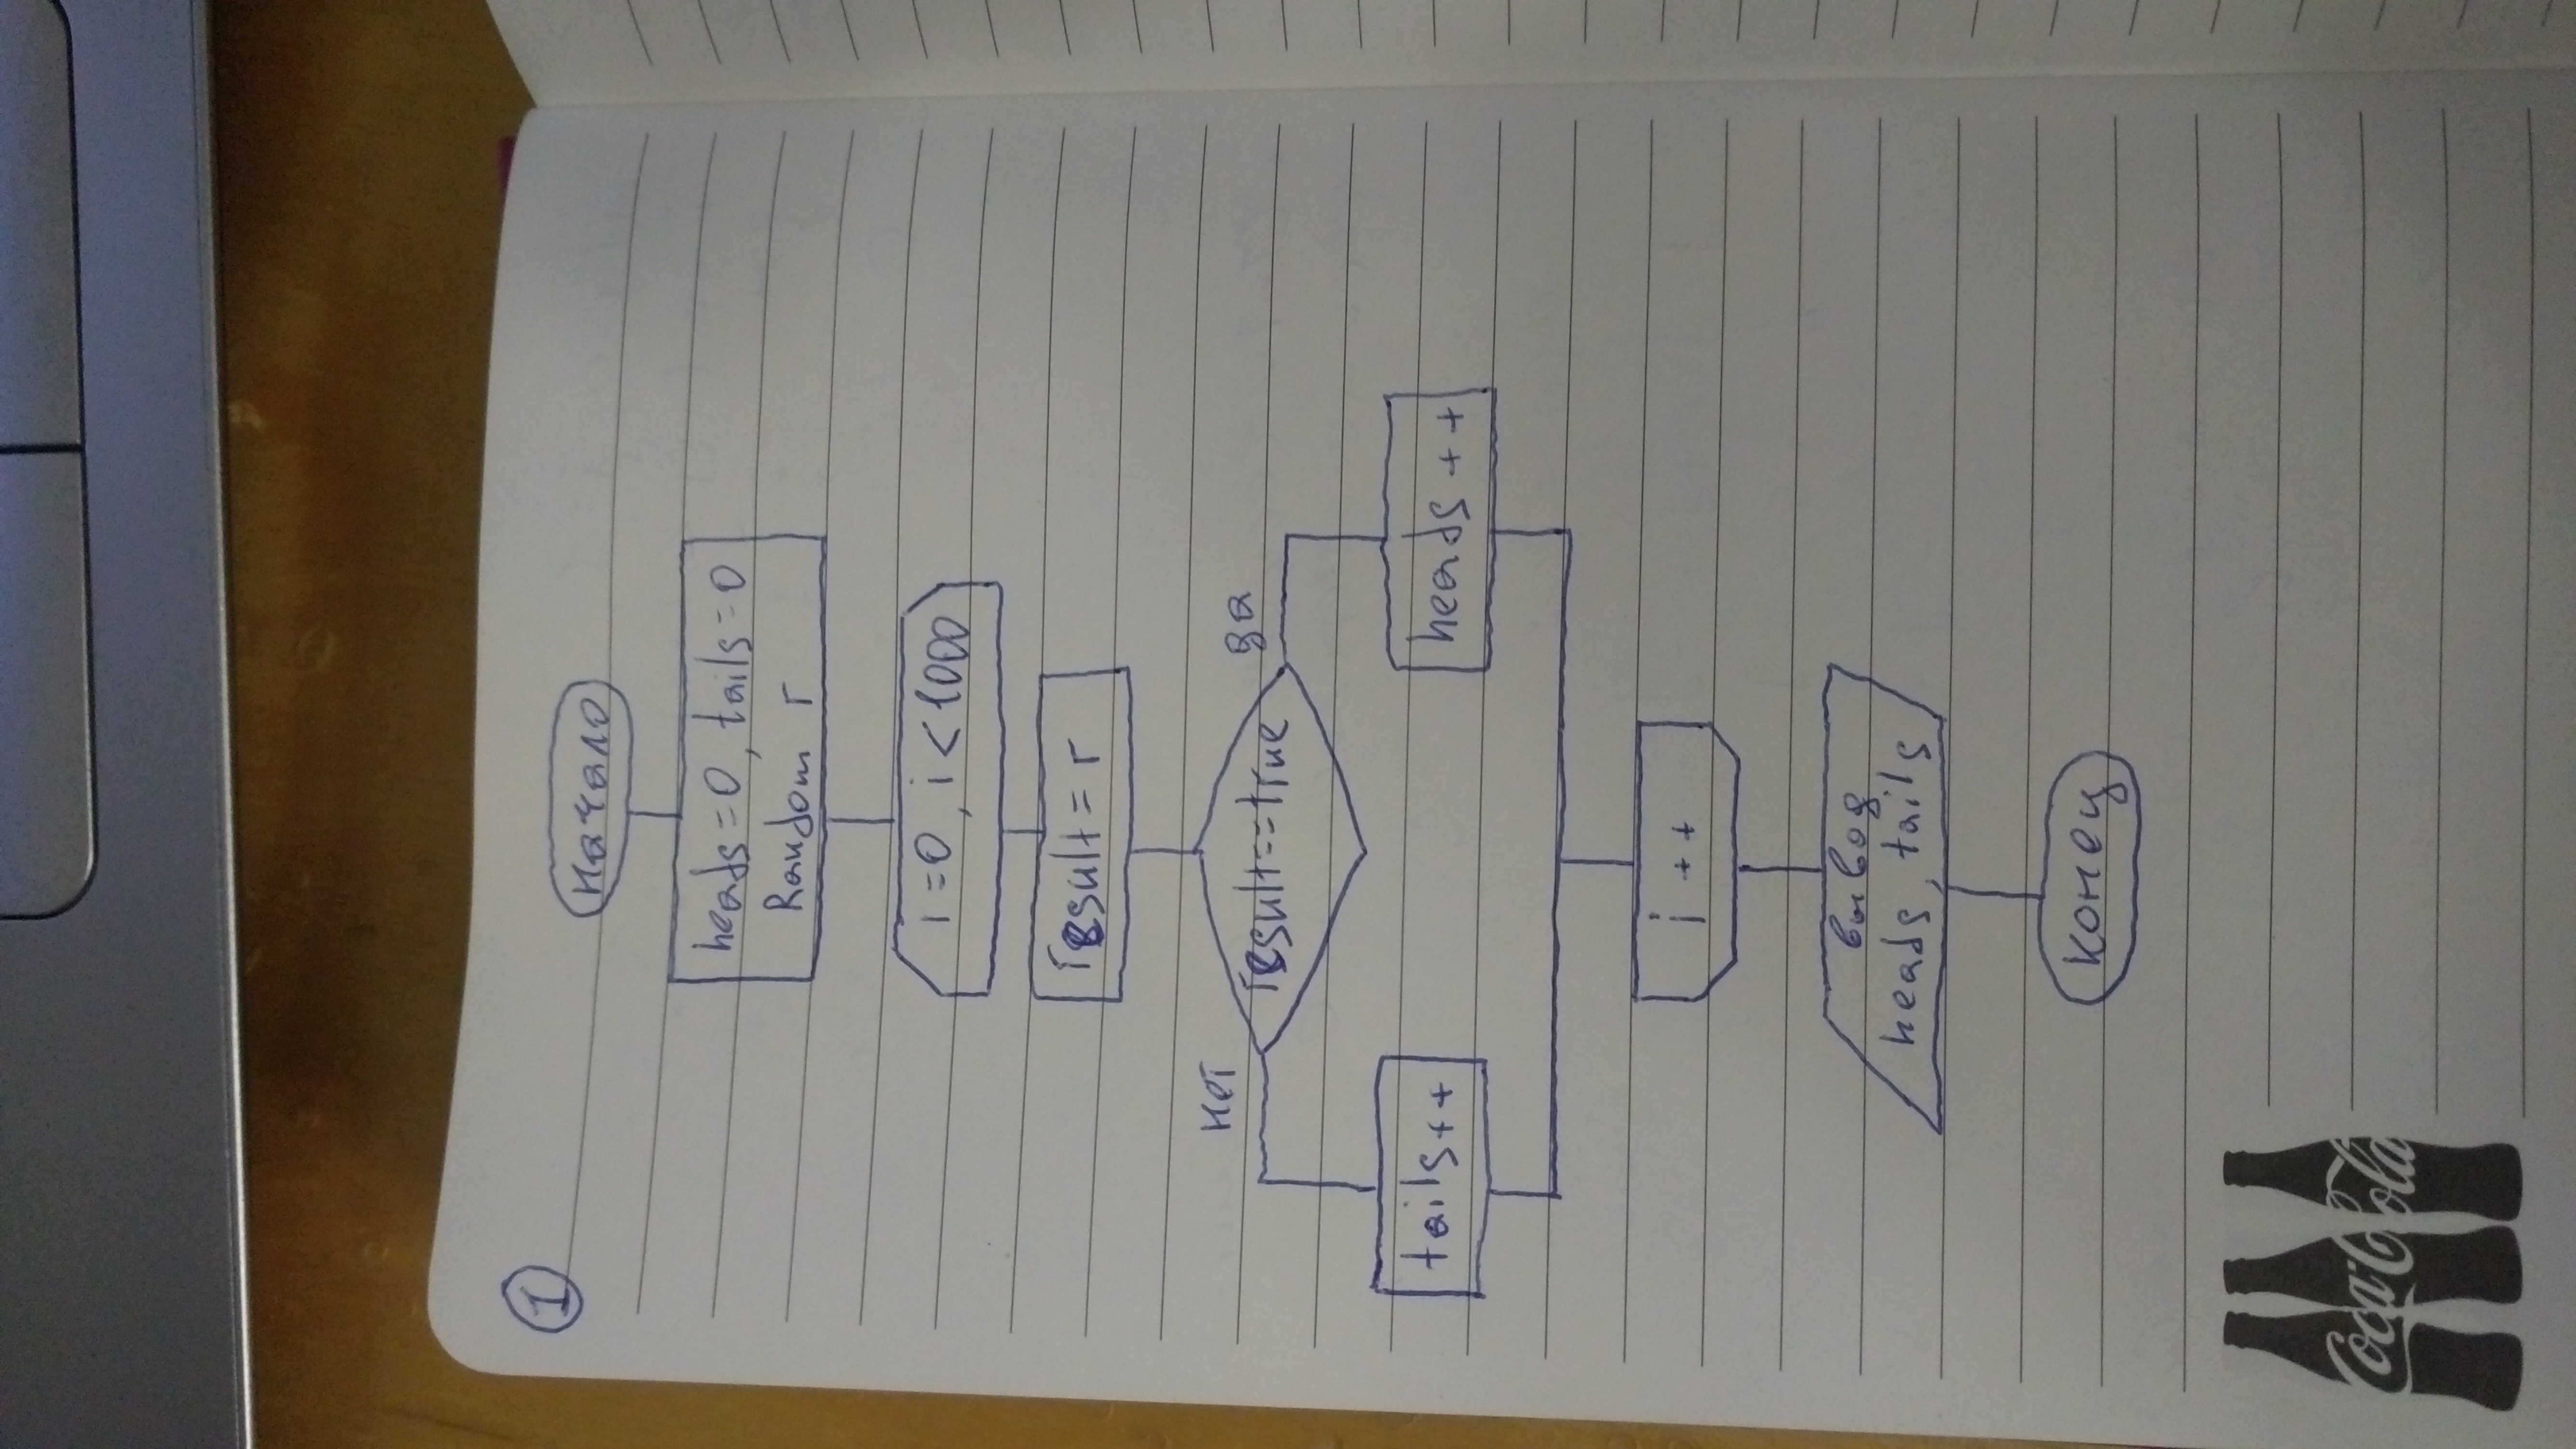 1
начало
heads=0, tails=0
Random r
i=0, i<1000
result=r
result==true
нет
да
tails++
heads++
i++
вывод
heads, tails
конец
Coca-Cola